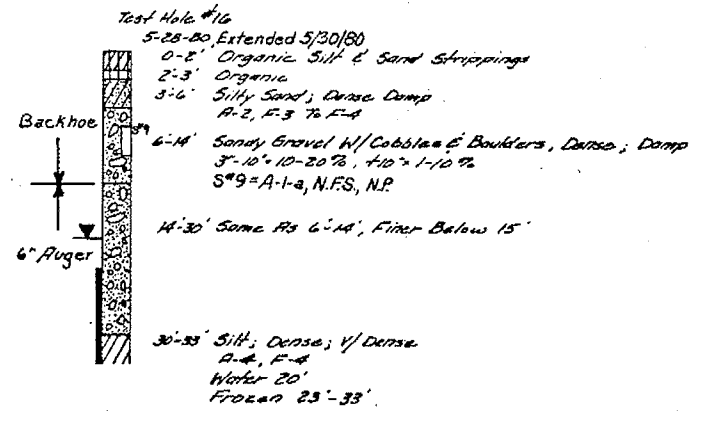 Test Hole #16
5-28-80, Extended 5/30/80
0-2' Organic Silt & Sand Strippings
2'-3' Organic
3'-6' Silty Sand; Dense Damp
A-2, F-3 To F-4
Backhoe
S#9
6'-14' Sandy Gravel W/Cobbles & Boulders, Dense; Damp
3"-10"=10-20%, +10"=1-10%
S#9=A-1-a, N.F.S., N.P.
14'-30' Same As 6'-14', Finer Below 15'
6" Auger
30'-33' Silt; Dense; V/Dense
A-4, F-4
Water 20'
Frozen 23'-33'